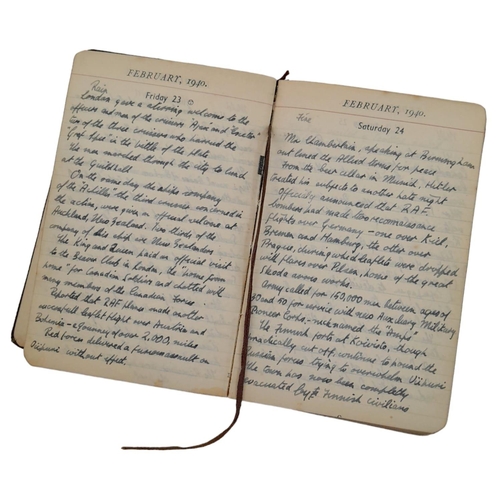 FEBRUARY, 1940.
Rain
Friday 23
London gave a stirring welcome to the
officers and men of the cruisers Ajax and Exeter
two of the three cruisers who harried the
Graf Spee in the battle of the Plate
The men marched through the city to lunch
at the Guildhall
On the same day the ships company
of the Achilles the third concerned in
the action, were given an official welcome at
Auckland, New Zealand. Two thirds of the
company of this ship are New Zealanders
The King and Queen paid an official visit
to the Beaver Club in London, the "home from
home" for Canadian Soldiers and chatted with
many members of the Canadian Forces
Reported that RAF planes made another
successful night flight over Austria and
Bohemia - a journey of over 2,000 miles
Red forces delivered a furious assault on
Viipuri without effect.
FEBRUARY, 1940.
Fine
Saturday 24
Mr Chamberlain, speaking at Birmingham
outlined the Allied terms for peace
From the beer cellar in Munich, Hitler
treated his subjects to another hate night
Officially announced that R.A.F.
bombers had made two reconnaissance
flights over Germany - one over Kiel,
Bremen and Hamburg, the other over
Prague, during which leaflets were dropped
with flares over Pilsen, home of the great
Skoda arms works.
Army called for 150,000 men between ages of
30 and 50 for service with new Auxiliary Military
Pioneer Corps - nicknamed the
The Finnish forts at Koivisto, though
practically cut off, continue to pound the
Russian forces trying to overwhelm Viipuri
the town has now been completely
evacuated by Finnish civilians